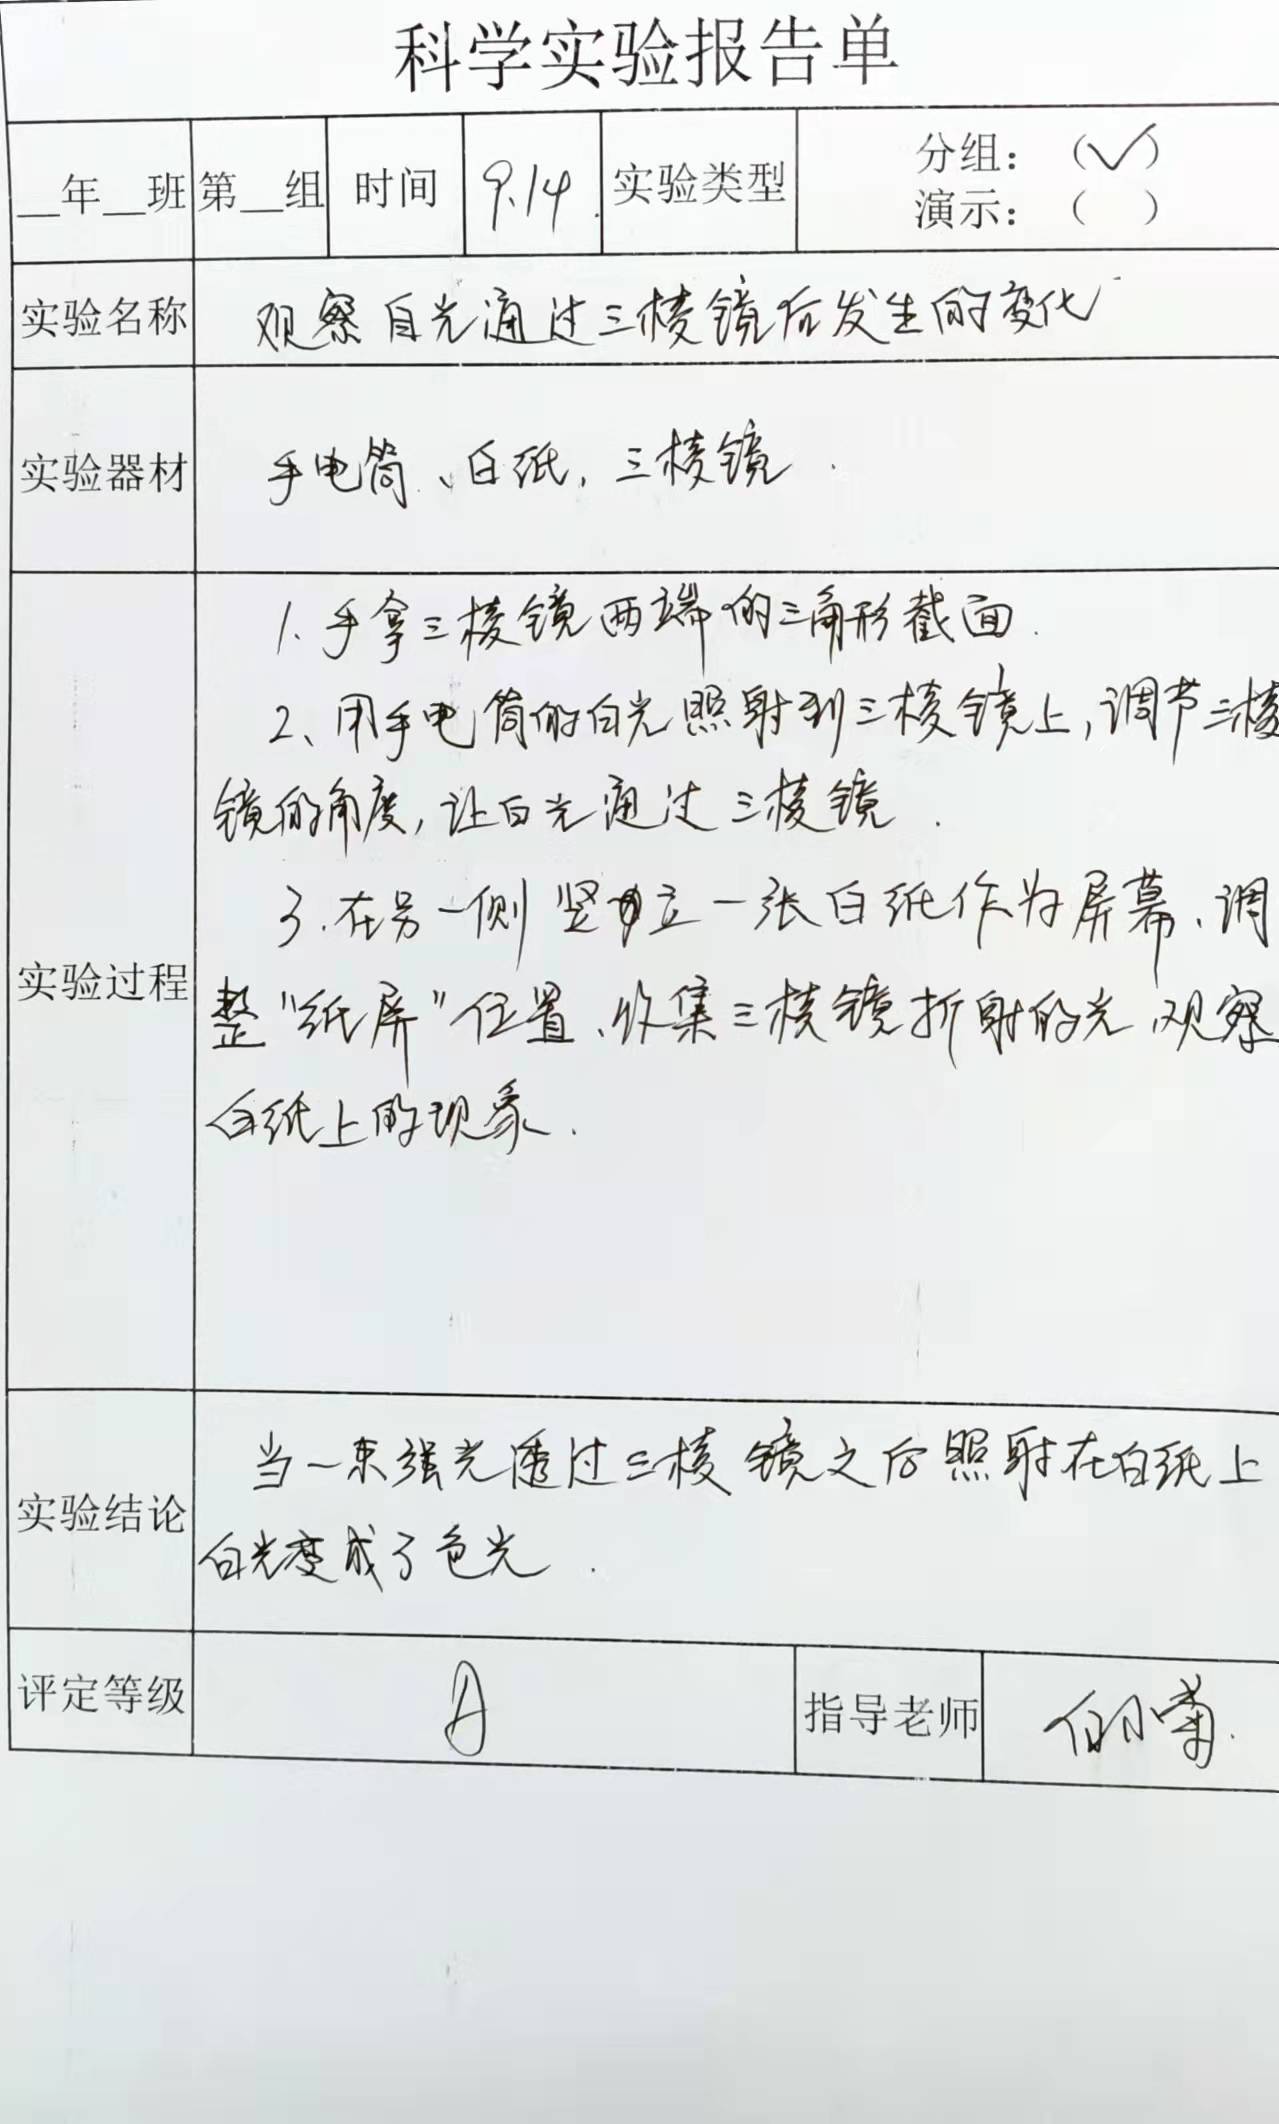 科学实验报告单
__年__班 第__组 时间 9.14. 实验类型 分组：（✓）
演示：（ ）
实验名称 观察白光通过三棱镜后发生的变化
实验器材 手电筒、白纸，三棱镜.
1、手拿三棱镜两端的三角形截面.
2、用手电筒的白光照射到三棱镜上，调节三棱
镜的角度，让白光通过三棱镜.
3.在另一侧竖立一张白纸作为屏幕、调
实验过程
整“纸屏”位置、收集三棱镜折射的光、观察
白纸上的现象.
当一束强光透过三棱镜之后照射在白纸上
实验结论
白光变成了色光.
评定等级 A 指导老师